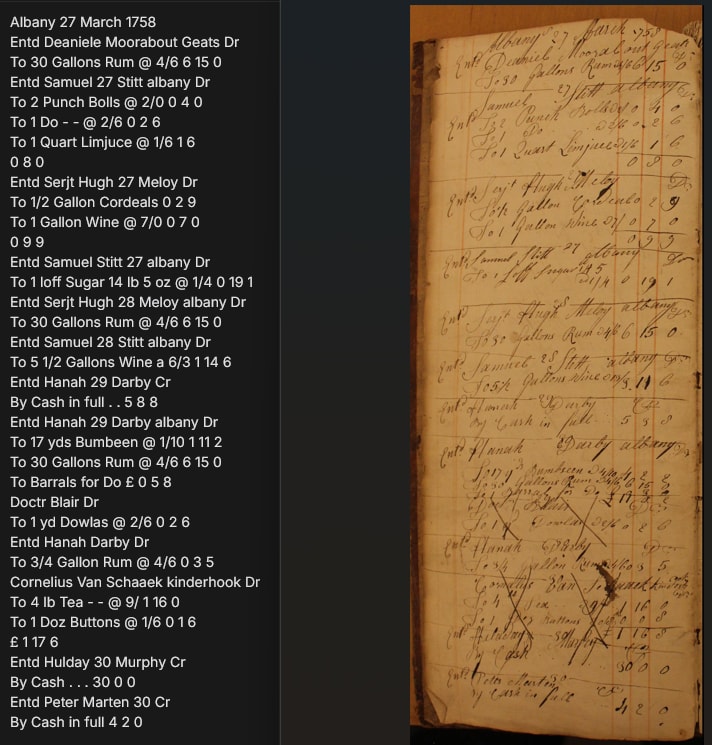 Albany 27 March 1758
Entd Deaniele Moorabout Geats Dr
To 30 Gallons Rum @ 4/6 6 15 0
Entd Samuel 27 Stitt albany Dr
To 2 Punch Bolls @ 2/0 0 4 0
To 1 Do - - @ 2/6 0 2 6
To 1 Quart Limjuce @ 1/6 1 6
0 8 0
Entd Serjt Hugh 27 Meloy Dr
To 1/2 Gallon Cordeals 0 2 9
To 1 Gallon Wine @ 7/0 0 7 0
0 9 9
Entd Samuel Stitt 27 albany Dr
To 1 loff Sugar 14 lb 5 oz @ 1/4 0 19 1
Entd Serjt Hugh 28 Meloy albany Dr
To 30 Gallons Rum @ 4/6 6 15 0
Entd Samuel 28 Stitt albany Dr
To 5 1/2 Gallons Wine a 6/3 1 14 6
Entd Hanah 29 Darby Cr
By Cash in full . . 5 8 8
Entd Hanah 29 Darby albany Dr
To 17 yds Bumbeen @ 1/10 1 11 2
To 30 Gallons Rum @ 4/6 6 15 0
To Barrals for Do £ 0 5 8
Doctr Blair Dr
To 1 yd Dowlas @ 2/6 0 2 6
Entd Hanah Darby Dr
To 3/4 Gallon Rum @ 4/6 0 3 5
Cornelius Van Schaaek kinderhook Dr
To 4 lb Tea - - @ 9/ 1 16 0
To 1 Doz Buttons @ 1/6 0 1 6
£ 1 17 6
Entd Hulday 30 Murphy Cr
By Cash . . . 30 0 0
Entd Peter Marten 30 Cr
By Cash in full 4 2 0
Albany 27 March 758
Entd Deaniel Moorabout
To 30 Gallons Rum 6 15 0
Samuel 27 Stitt albany
Entd To 2 Punch Bolls 0 4 0
To 1 Do 2/6 0 2 6
To 1 Quart Limjuce 1 6
0 8 0
Entd Serjt Hugh Meloy Dr
To 1/2 Gallon 0 2 9
To 1 Gallon Wine 0 7 0
0 9 9
Entd Samuel Stitt 27 albany Dr
To 1 Loff Sugar
1/4 0 19 1
Entd Serjt Hugh 28 Meloy albany
To 30 Gallons Rum 6 15 0
Entd Samuel 28 Stitt albany
To 5 1/2 Gallons Wine
Entd Hanah Darby
By Cash in full 5 8 8
Entd Hanah Darby albany
To 17 yd Bumbeen
To 30 Gallons Rum
for Do
To 1 Dowlas 2/6 0 2 6
Entd Hanah Darby
To 3/4 Gallon Rum 3 5
Cornelius Van
To 4 Tea 1 16 0
To 1 Buttons
£ 1 16 8
Entd 30
By Cash 30 0 0
Entd Peter Marten
By Cash in full
4 2 0